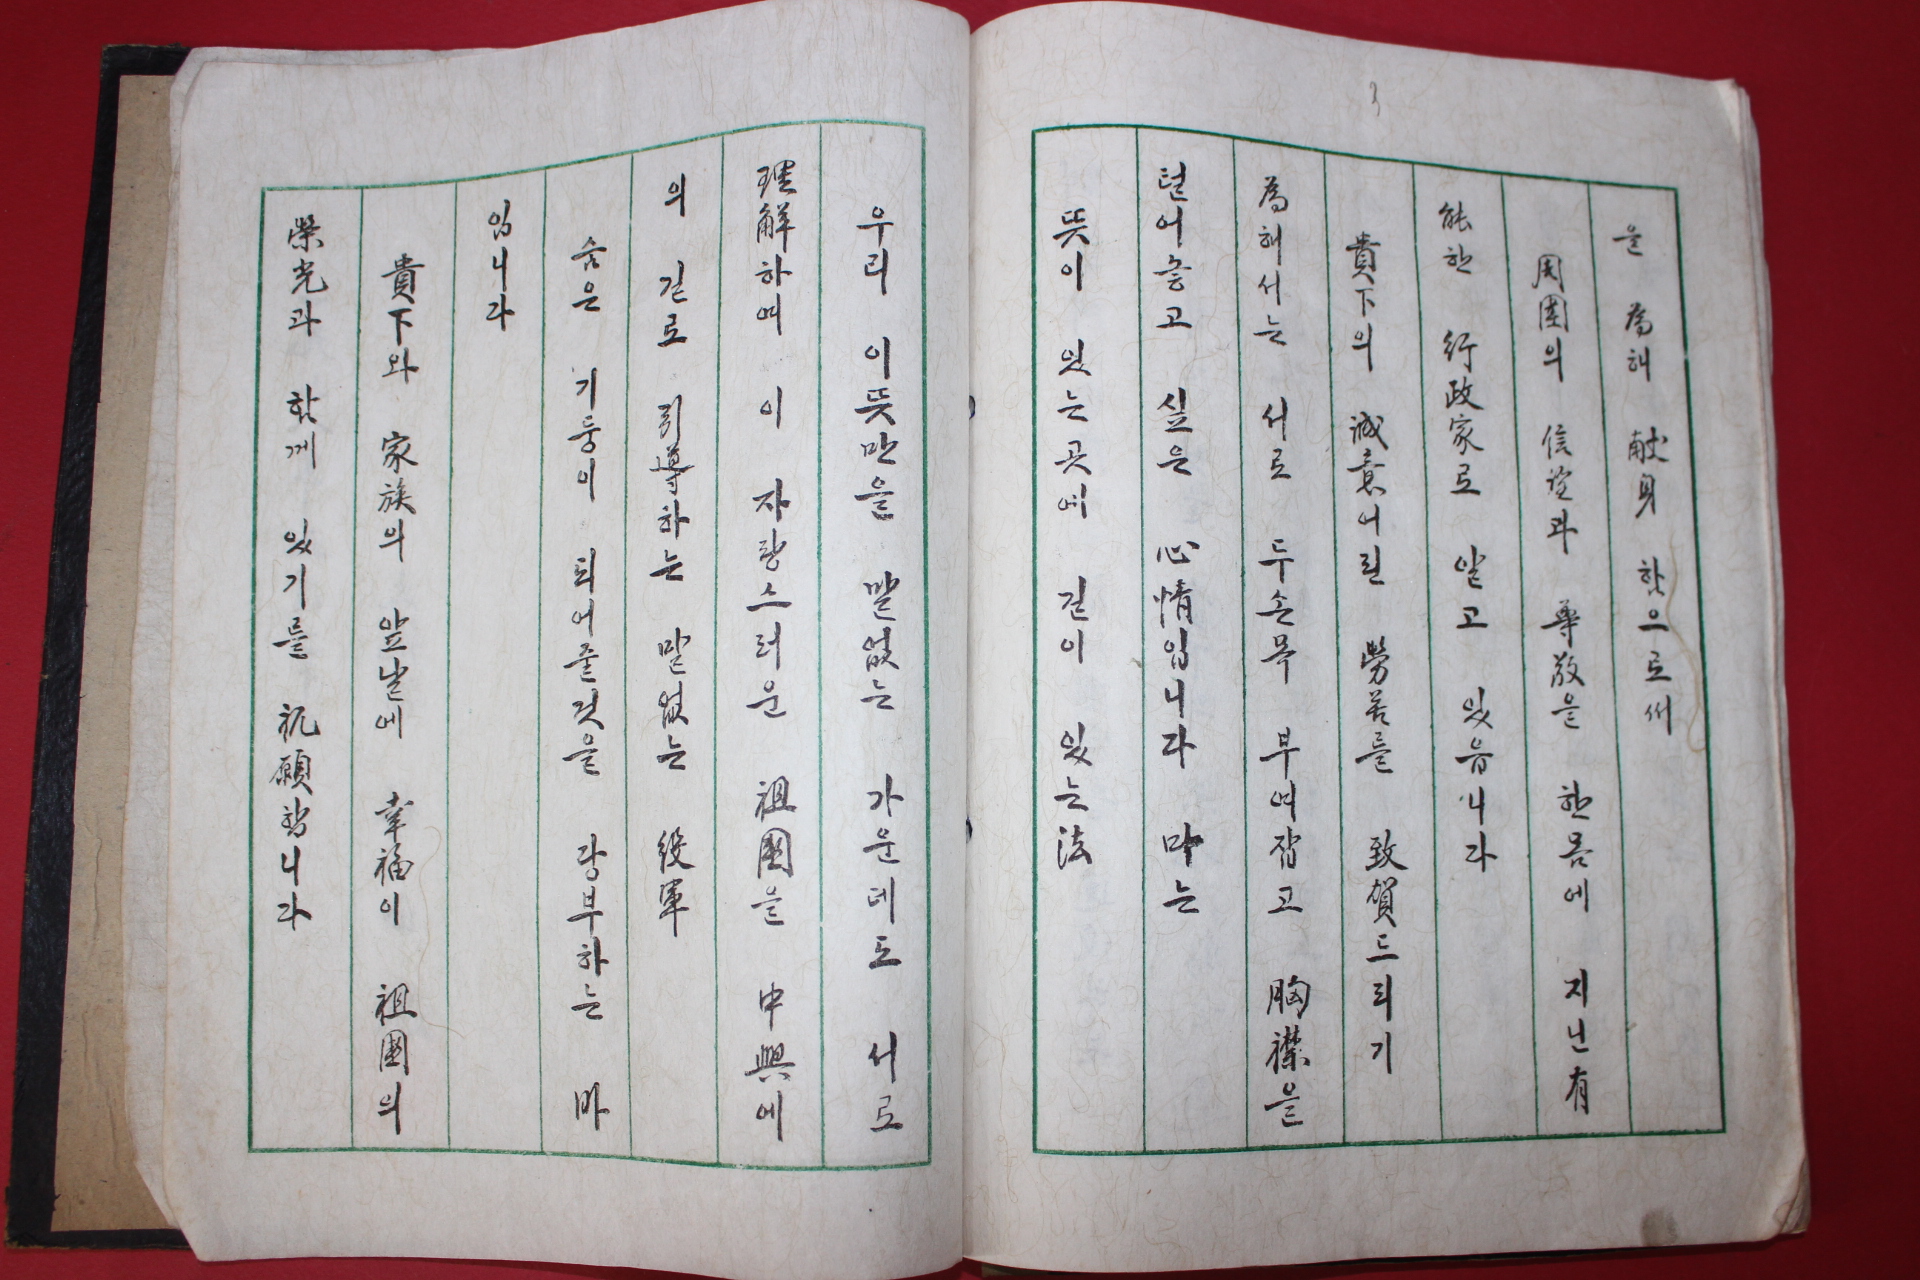 을 為해 献身 함으로써
周圍의 信望과 尊敬을 한몸에 지닌 有
能한 行政家로 알고 있읍니다
貴下의 誠意어린 勞苦를 致賀드리기
為해서는 서로 두손목 부여잡고 胸襟을
털어놓고 싶은 心情입니다 마는
뜻이 있는곳에 길이 있는法
우리 이뜻만을 말없는 가운데도 서로
理解하며 이 자랑스러운 祖國을 中興에
의 길로 引導하는 말없는 役軍
숨은 기둥이 되어줄것을 당부하는 바
입니다
貴下와 家族의 앞날에 幸福이 祖國의
榮光과 함께 있기를 祝願합니다